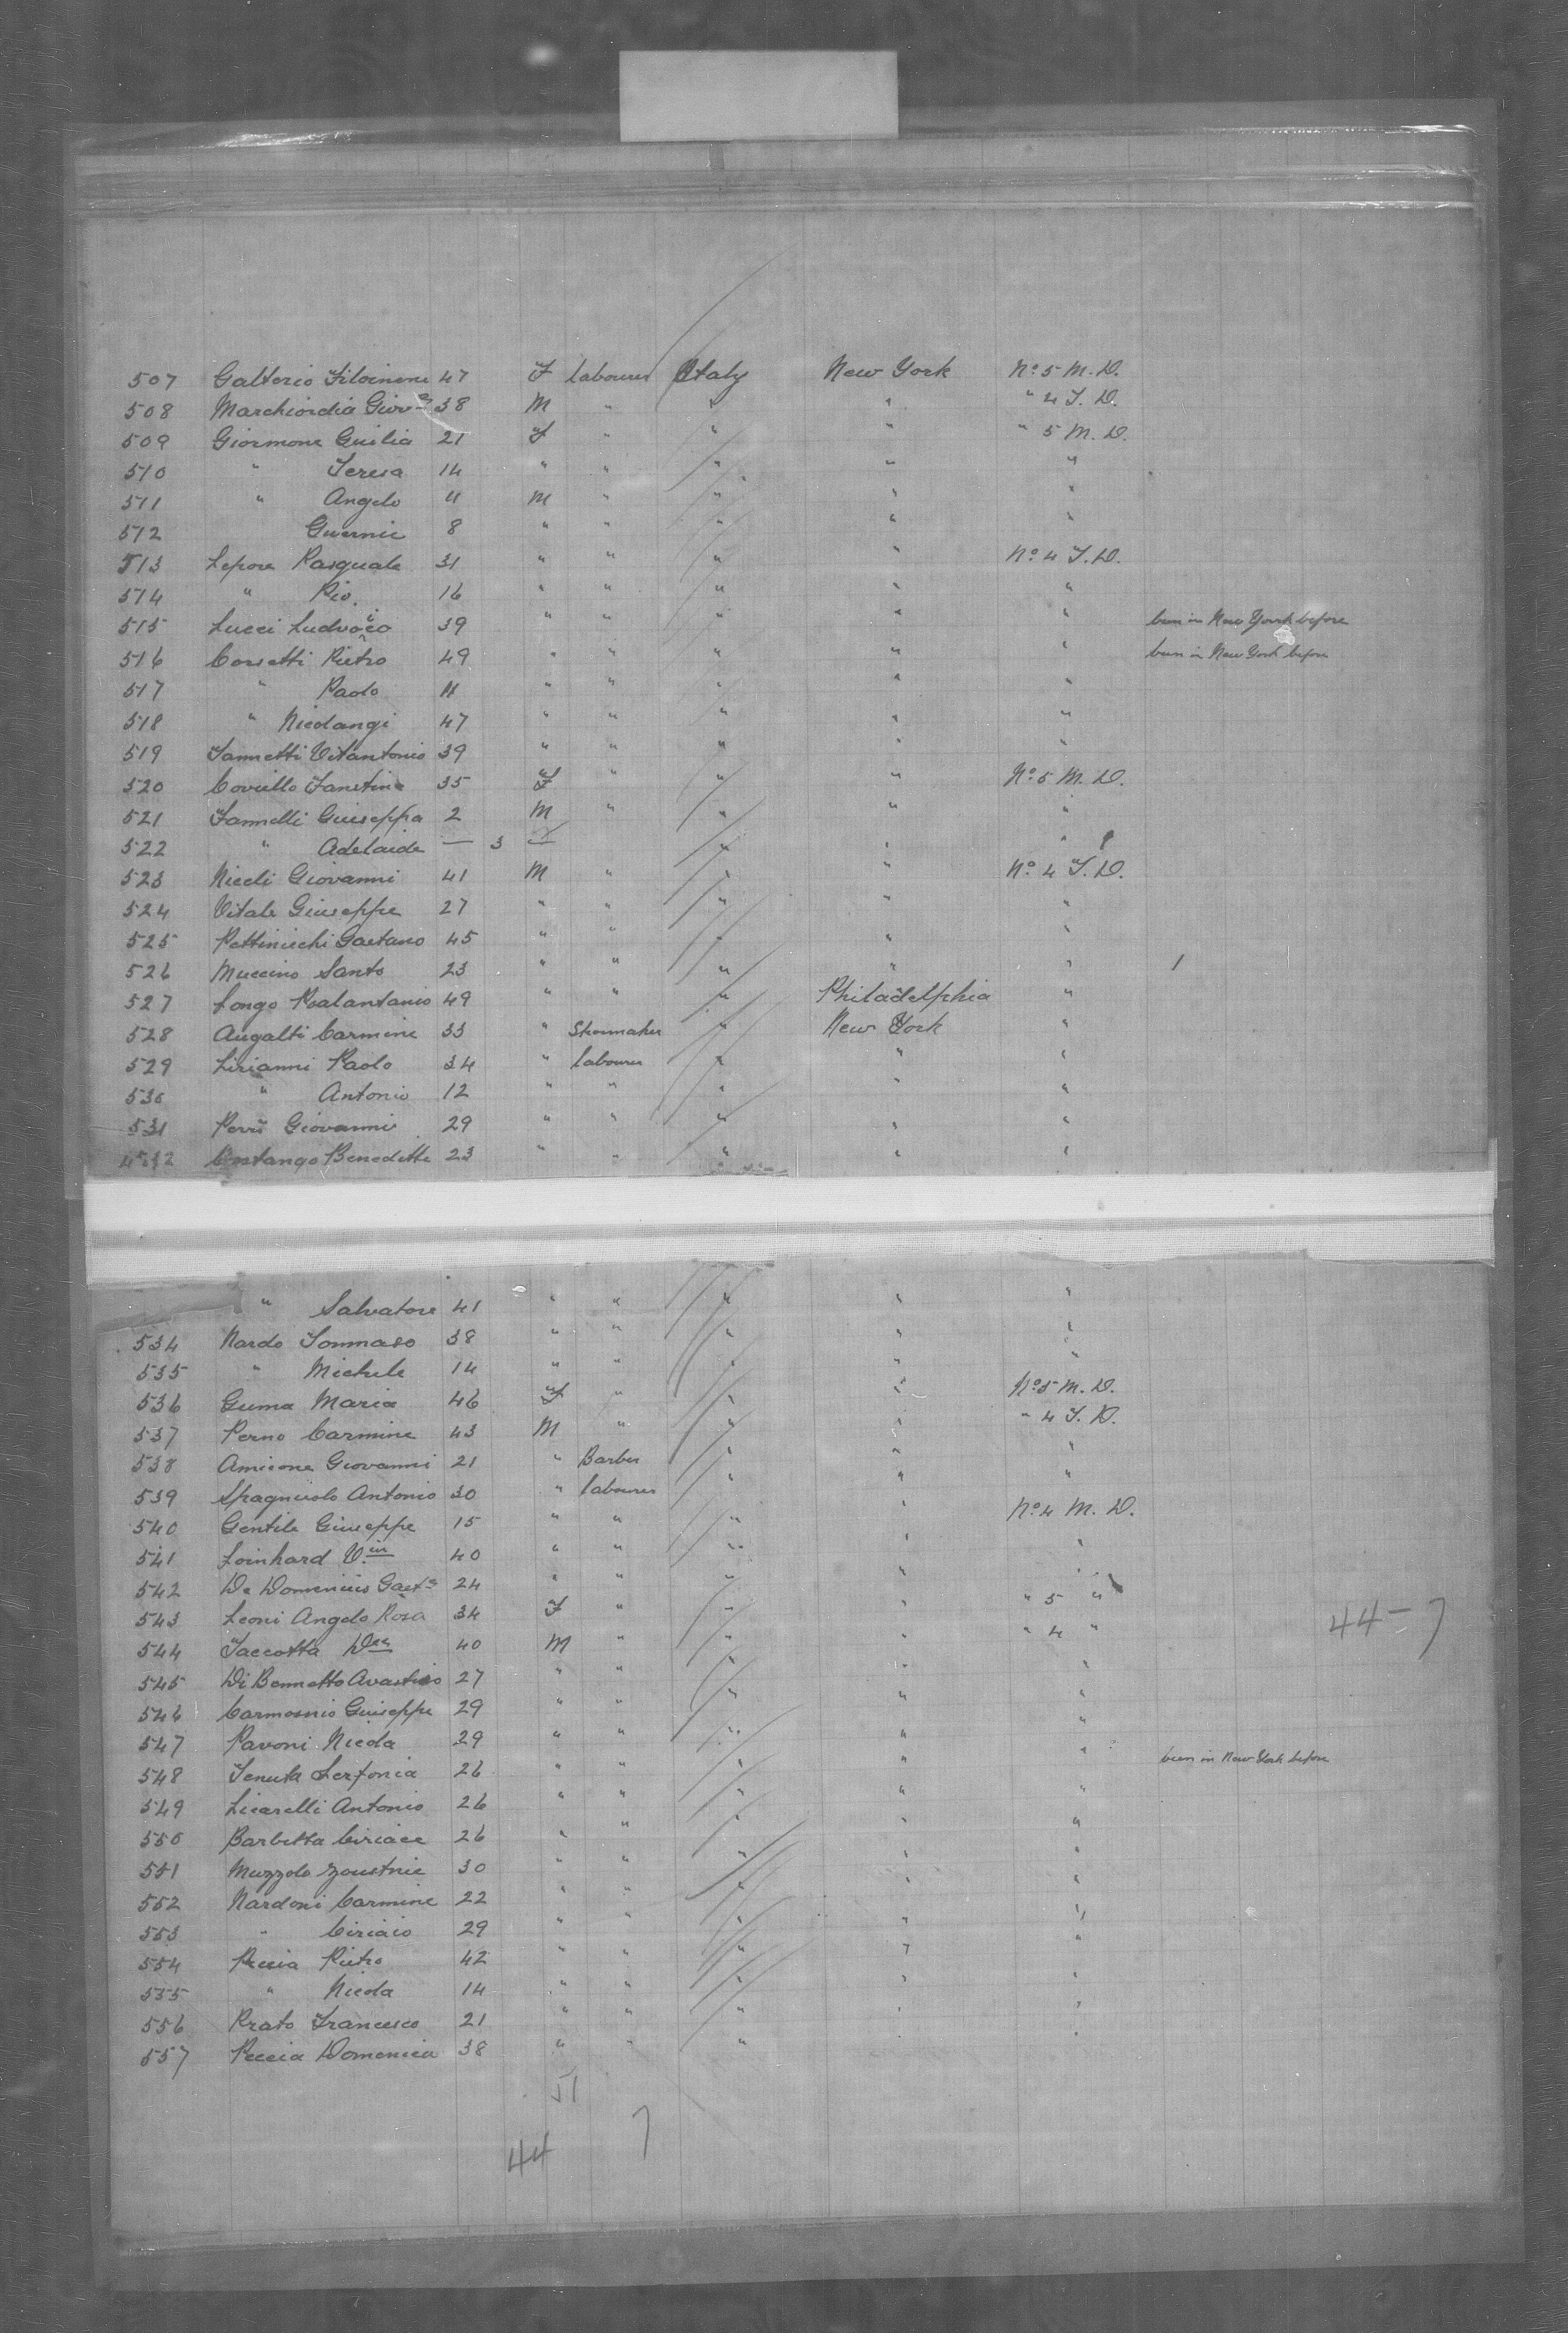 507 Galterio Filoinena 47 F labourer Italy New York No 5 M. D.
508 Marchiordia Giov 38 M " " " " 4 J. D.
509 Giormone Guilia 21 F " " " " 5 M. D.
510 " Teresa 14 " " " " "
511 " Angelo 11 M " " " "
512 Guernie 8 " " " " "
513 Lepore Pasquale 31 " " " " No 4 J. D.
514 " Pio 16 " " " " "
515 Lucci 39 " " " " " been in New York before
516 Corsetti Pietro 49 " " " " " been in New York before
517 " Paolo 11 " " " " "
518 " Nicolangi 47 " " " " "
519 Iannetti Vitantonio 39 " " " " "
520 Coviello 35 F " " " No 5 M. D.
521 Iannelli Giuseppa 2 M " " " "
522 " Adelaide — 3 " " "
523 Nicoli Giovanni 41 M " " " No 4 J. D.
524 Vitale Giuseppe 27 " " " " "
525 Pettinicchi Gaetano 45 " " " " "
526 Muccino Santo 23 " " " " " 1
527 Longo 49 " " " Philadelphia "
528 Augalti Carmine 33 " Shoemaker " New York "
529 Lirianni Paolo 34 " labourer " " "
530 " Antonio 12 " " " " "
531 Perri Giovanni 29 " " " " "
532 Costango Beneditto 23 " " " " "
" Salvatore 41 " " " " "
534 Nardo Tommaso 38 " " " " "
535 " Michele 14 " " " " "
536 Guma Maria 46 F " " " No 5 M. D.
537 Perno Carmine 43 M " " " " 4 J. D.
538 Amicone Giovanni 21 " Barber " " "
539 Spagnuolo Antonio 30 " labourer " " "
540 Gentile Giuseppe 15 " " " " No 4 M. D.
541 Loinhard Vin 40 " " " " "
542 De Domenicis Gaet 24 " " " " "
543 Leoni Angelo Rosa 34 F " " " " 5 "
544 Iaccotta 40 M " " " " 4 " 44 - 7
545 Di Bennetto 27 " " " " "
546 Carmosnio Giuseppe 29 " " " " "
547 Pavoni Nicola 29 " " " " "
548 Tenuta 26 " " " " " been in New York before
549 Licarelli Antonio 26 " " " " "
550 Barbetta Ciriace 26 " " " " "
551 Muzzolo 30 " " " " "
552 Nardoni Carmine 22 " " " " "
553 " Ciriaco 29 " " " " "
554 Pietro 42 " " " " "
555 " Nicola 14 " " " " "
556 Prato Francesco 21 " " " " "
557 Peccia Domenica 38 " " " " "
51
44 7